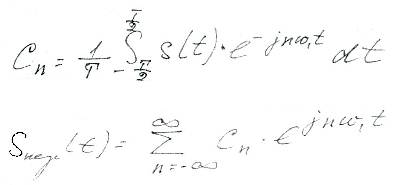 C_n = 1/T ∫_{-T/2}^{T/2} s(t)·e^{-jnω₁t} dt
S_{пер.}(t) = ∑_{n=-∞}^{∞} C_n·e^{jnω₁t}